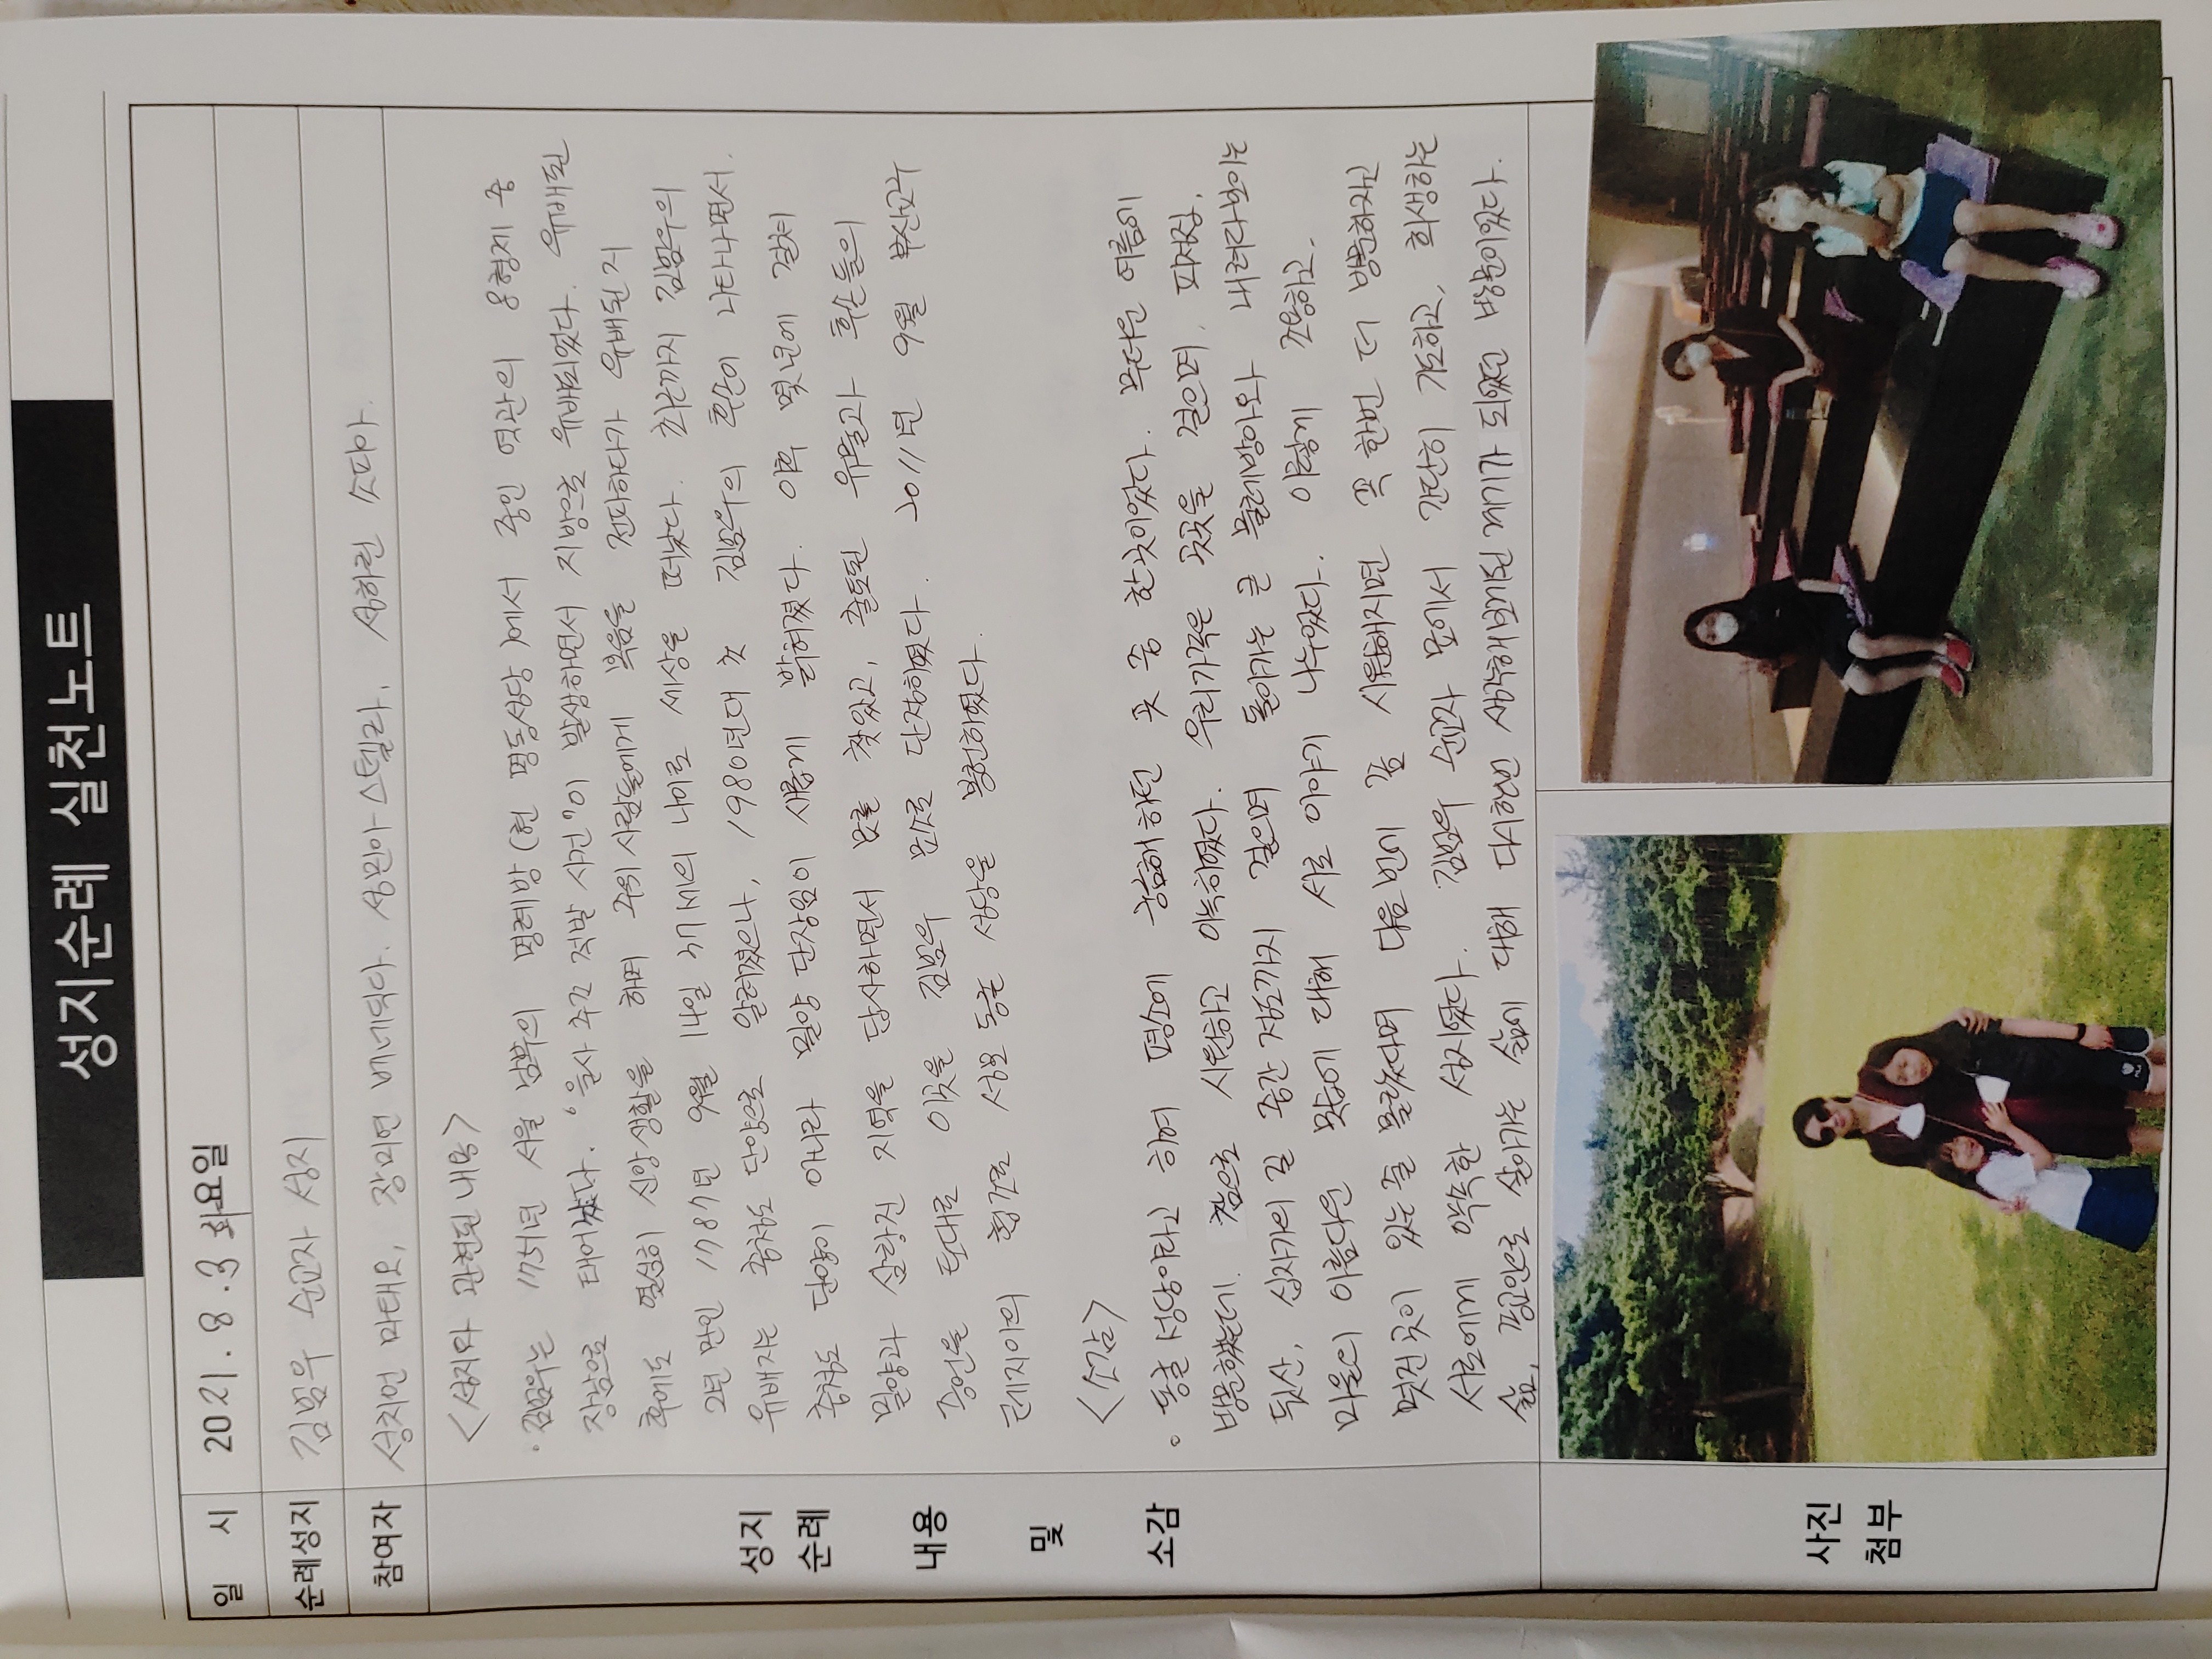 성지순례 실천노트
일 시
2021. 8. 3 화요일
순례성지
김범우 순교자 성지
참여자
성치언 마태오, 장미연 베네딕다. 성민아 스텔라, 성하린 소피아.
성지
순례
내용
및
소감
<성지와 관련된 내용>
· 김범우는 1751년 서울 남부의 명례방(현 명동성당)에서 중인 역관의 8형제 중
장남으로 태어났다. '을사 추조 적발 사건'이 발생하면서 지방으로 유배되었다. 유배된
후에도 열심히 신앙생활을 하며 주위 사람들에게 복음을 전파하다가 유배된 지
2년 만인 1787년 9월 14일 37세의 나이로 세상을 떠났다. 최근까지 김범우의
유배지는 충청도 단양으로 알려졌으나, 1980년대 초 김범우의 후손이 나타나면서.
충청도 단양이 아니라 밀양 단장임이 새롭게 밝혀졌다. 이후 몇 년에 걸쳐
밀양과 삼랑진 지역을 답사하면서 묘를 찾았고, 출토된 유물과 후손들의
증언을 토대로 이곳을 김범우 묘소로 단장하였다. 2011년 9월 부산교구
레지아의 협조로 성모 동굴 성당을 봉헌하였다.
<소감>
◦ 동굴 성당이라고 하여 평소에 궁금해 하던 곳 중 한곳이었다. 무더운 여름에
방문했는데. 참으로 시원하고 아늑하였다. 우리가족은 곳곳을 걸으며, 피정집,
뒷산, 십자가의 길 중간 정도까지 걸으며 돌아가는 큰 물레방아와 내려다보이는
마을의 아름다운 모습에 대해 서로 이야기 나누었다. 이렇게 조용하고,
멋진 곳이 있는 줄 몰랐다며 다음 번에 좀 시원해지면 꼭 한번 더 방문하자고
서로에게 약속한 성지였다. 김범우 순교자 묘에서 간단히 기도하고, 희생하는
삶, 종교인으로 살아가는 삶에 대해 다시한번 생각해보게된 계기가 되었던 방문이었다.
사진
첨부